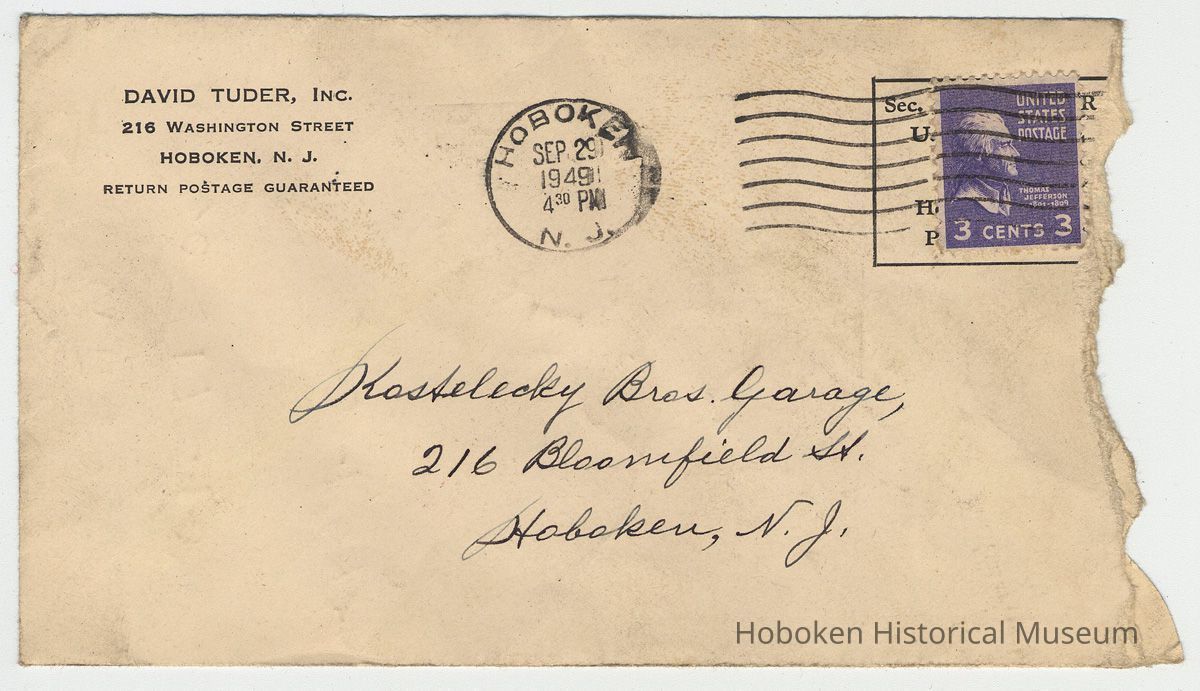 DAVID TUDER, INC.
216 WASHINGTON STREET
HOBOKEN, N. J.
RETURN POSTAGE GUARANTEED
HOBOKEN
SEP 29
1949
4 30 PM
N. J.
Sec. R
U.
H.
P
UNITED
STATES
POSTAGE
THOMAS
JEFFERSON
1801-1809
3 CENTS 3
Kostelecky Bros. Garage,
216 Bloomfield St.
Hoboken, N. J.
Hoboken Historical Museum